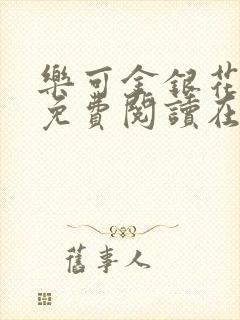 樂可金銀花
免費閱讀在
舊事人